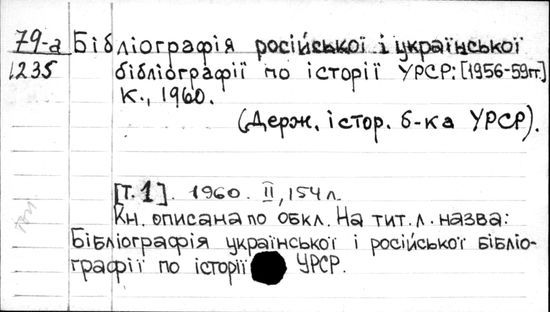 79-а Бібліографія російської і української
1235 бібліографії по історії УРСР: [1956-59гг.]
К., 1960.
(Держ. істор. б-ка УРСР).
[Т. 1]. 1960. II, 154 л.
Кн. описана по обкл. На тит. л. назва:
Бібліографія української і російської бібліо-
графії по історії УРСР.